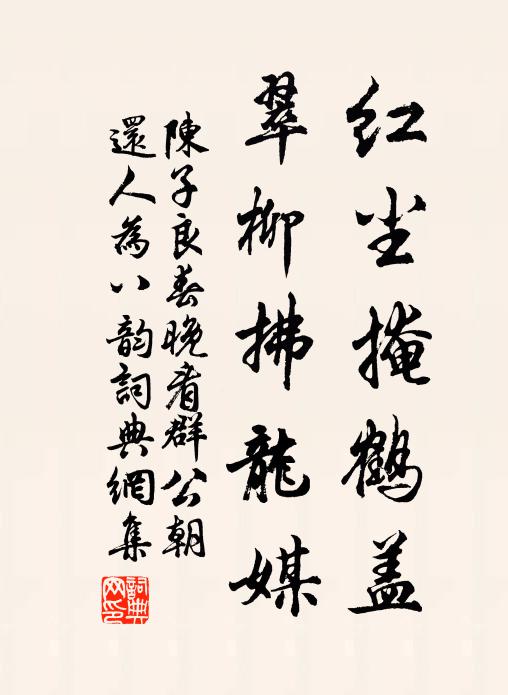 红尘掩鹤盖
翠柳拂龍媒
陳子良春晚看群公朝
還人為八韵詞典網集
詞典網印